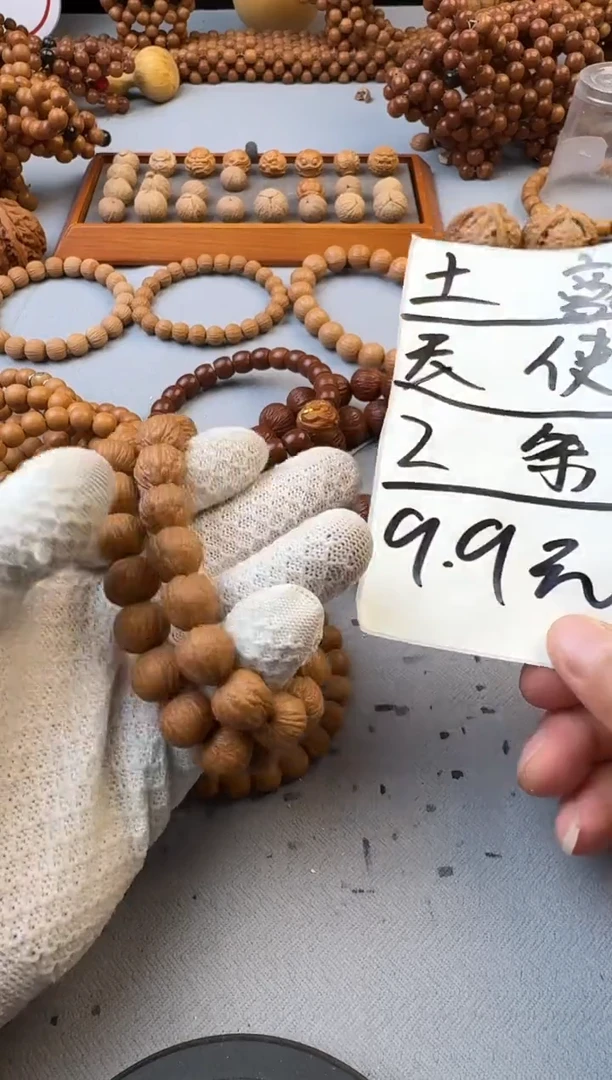 土
天使
2条
9.9元